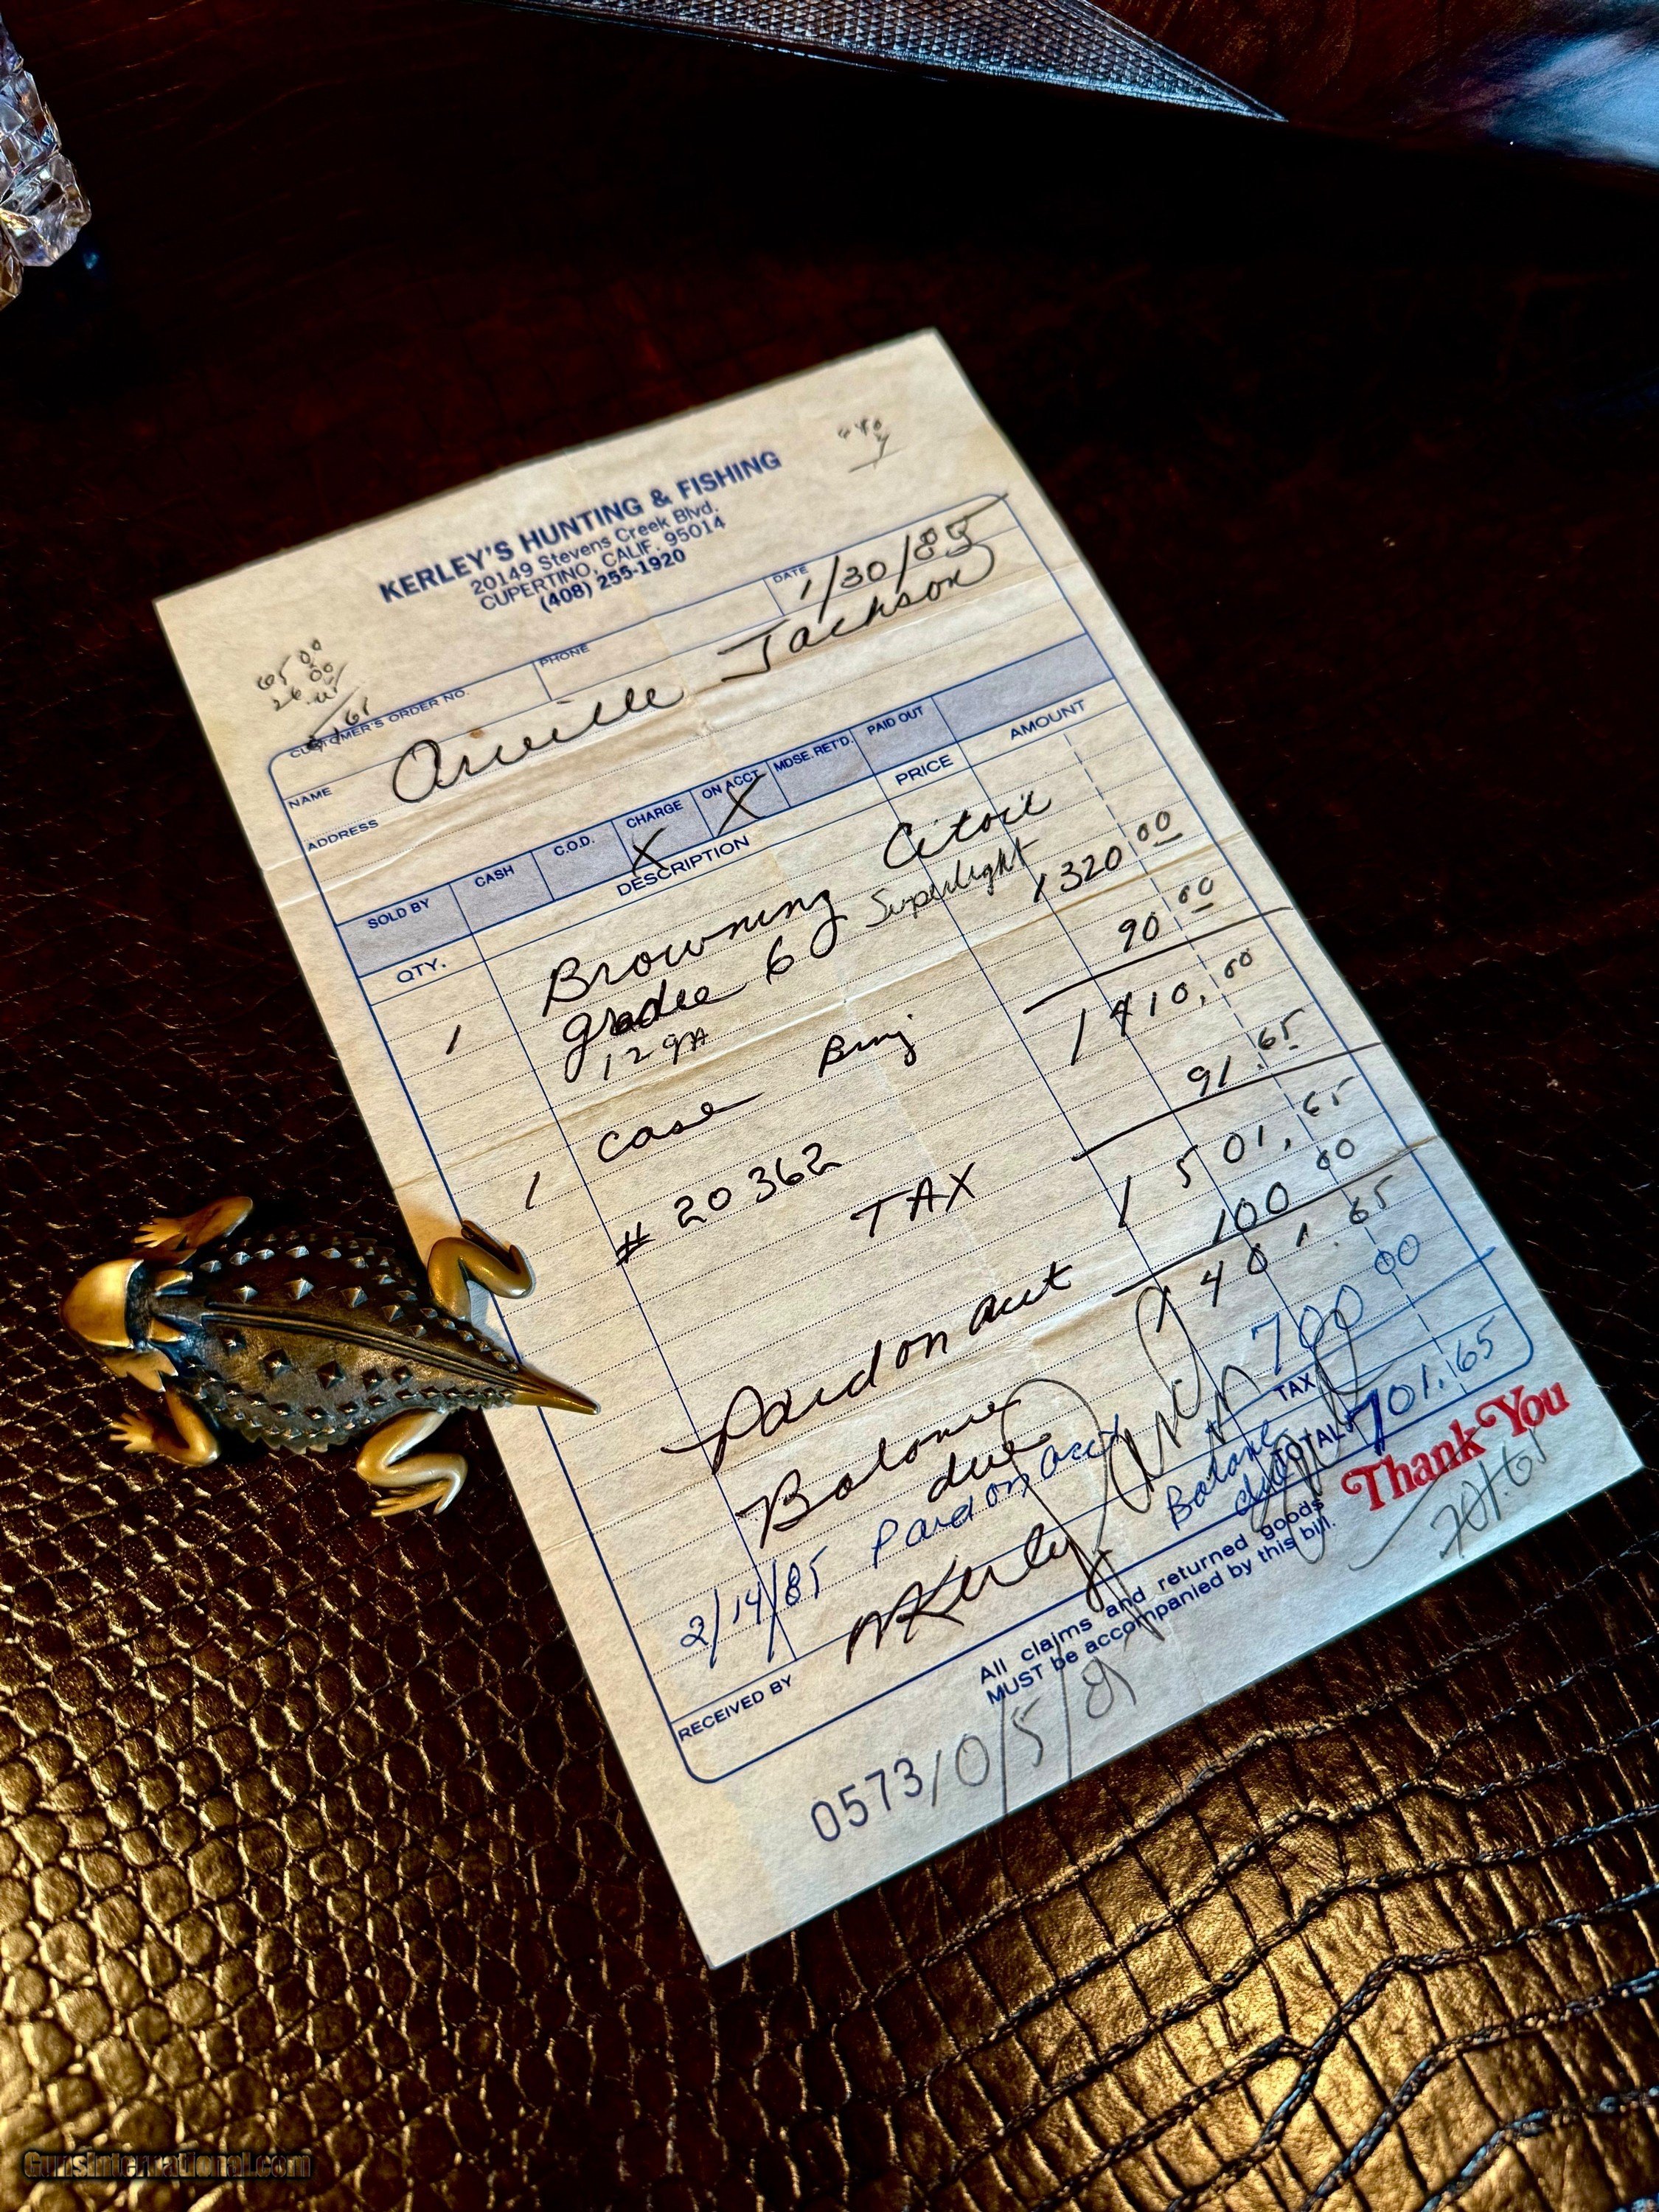 KERLEY'S HUNTING & FISHING
20149 Stevens Creek Blvd.
CUPERTINO, CALIF. 95014
(408) 255-1920
65 00
26 00
CUSTOMER'S ORDER NO.
PHONE
DATE 1/30/85
NAME Orville Jackson
ADDRESS
SOLD BY CASH C.O.D. CHARGE ON ACCT. MDSE. RET'D. PAID OUT
X X
QTY. DESCRIPTION PRICE AMOUNT
1 Browning Citori
grade 6 Superlight 1320 00
12 ga
1 case Brng 90 00
1410.00
# 20362
TAX 91.65
1501.65
Paid on acct 100 00
Balance due 1401.65
2/14/85 Paid on acct 700 00
Balance due
TAX
TOTAL 701.65
RECEIVED BY Kerley
All claims and returned goods
MUST be accompanied by this bill.
Thank You
701.65
0573
GunsInternational.com